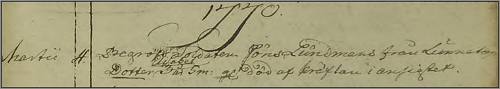 1770.
Martii 4 Begrofs Soldaten Jöns Lundmans från Lunnatorp
Dotter, död af kräftan i ansigtet.